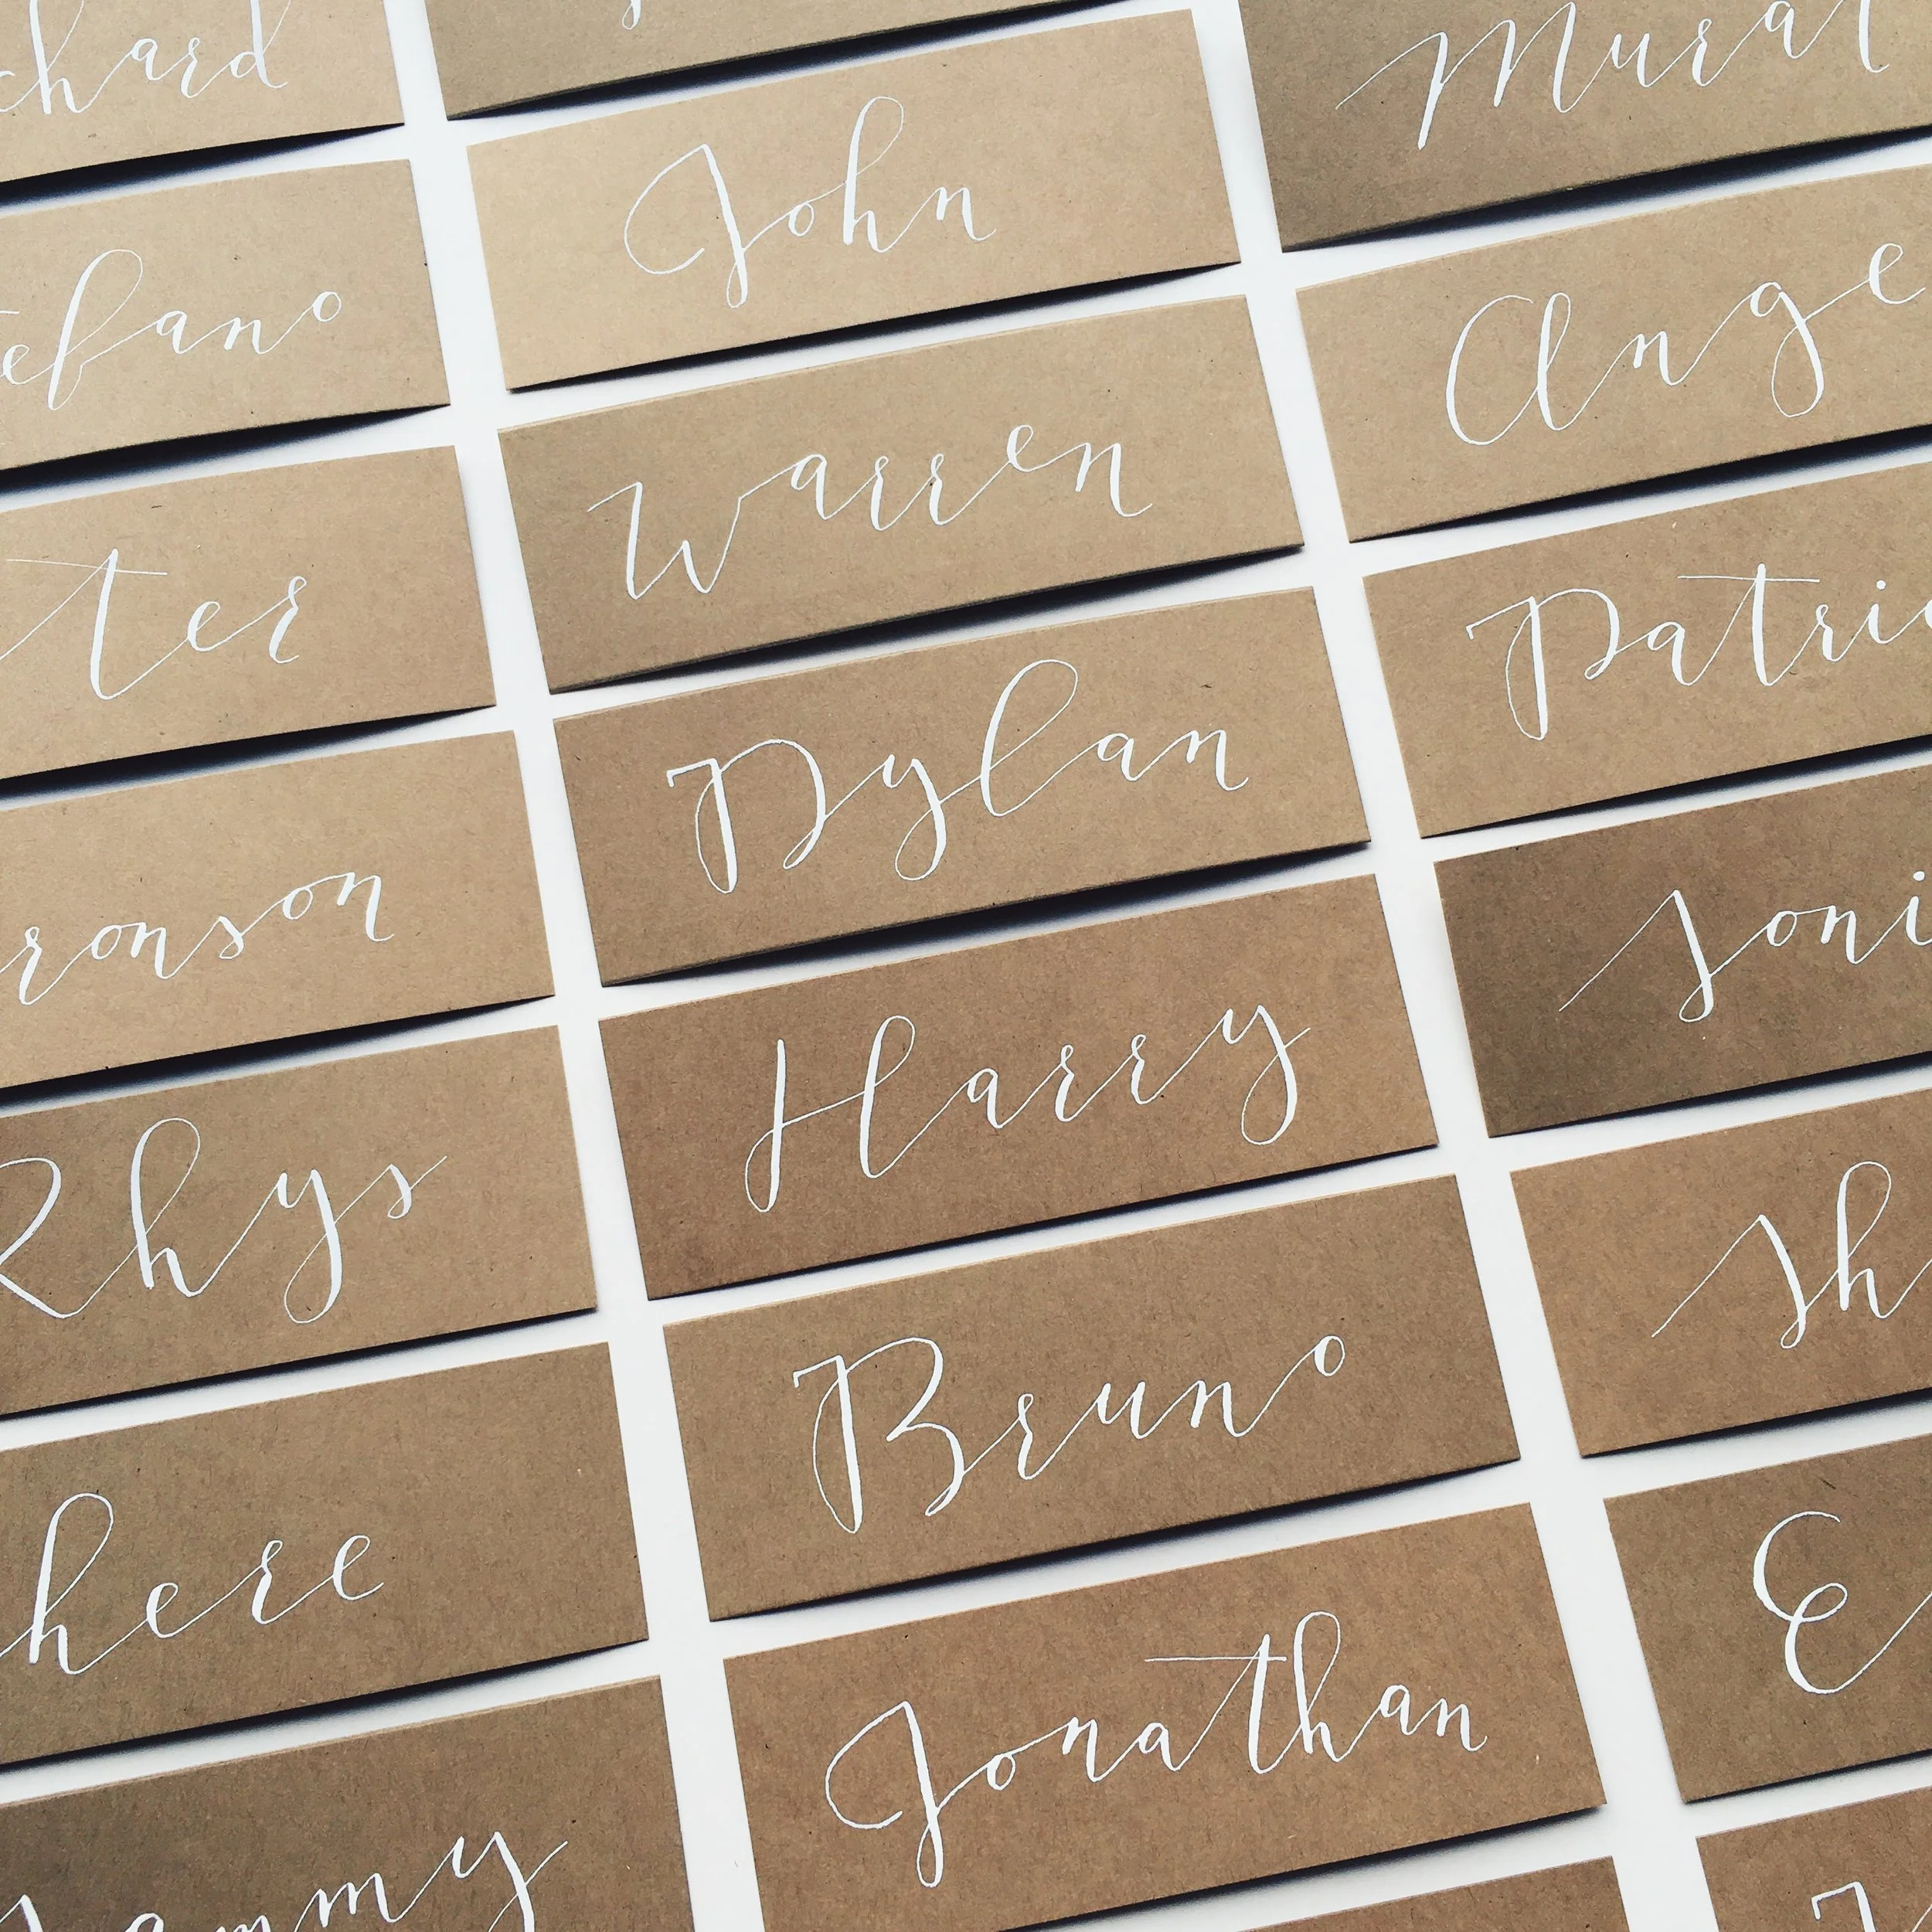 chard
efano
ter
ronson
Rhys
here
ammy
John
Warren
Dylan
Harry
Bruno
Jonathan
Murat
Ange
Patri
Soni
Sh
E